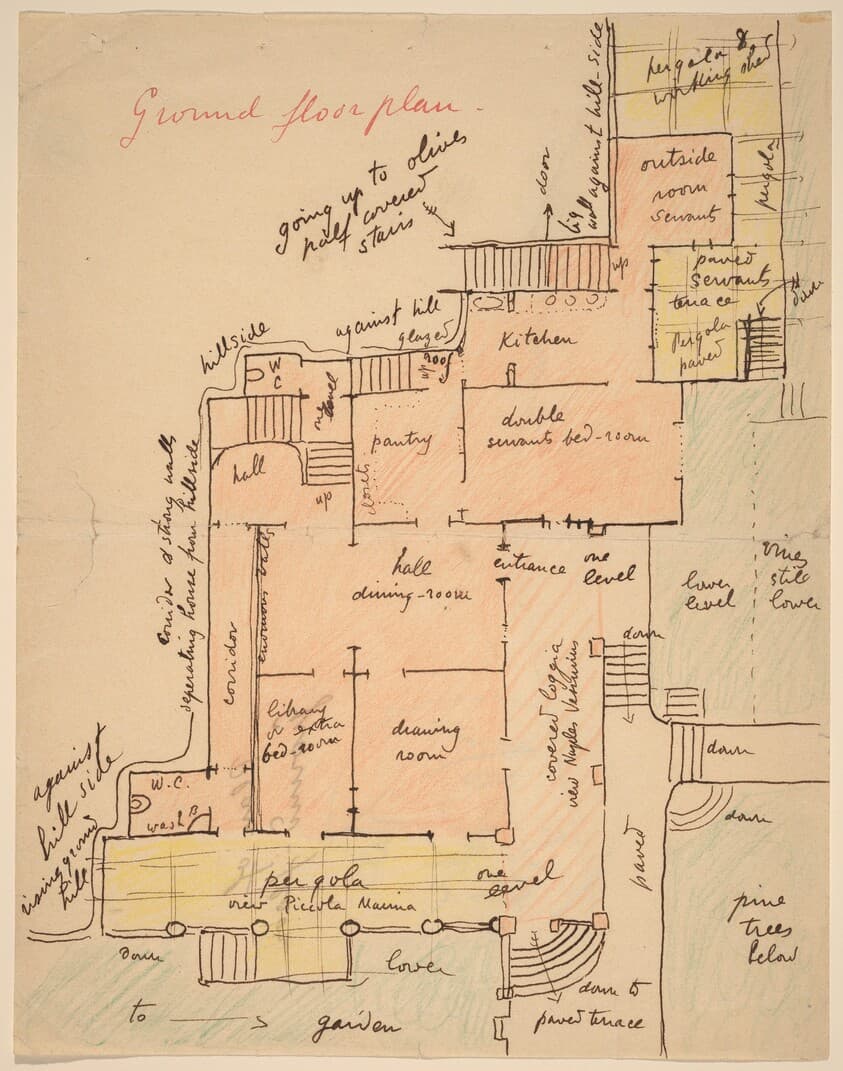 pergola &
working shed
Ground floor plan.
big
wall against hill-side
door
outside
room
servants
pergola
going up to olives
half covered
stairs
up
paved
servants
terrace
down
Pergola
paved
hillside
against hill
glazed
roof
up
Kitchen
W
C
one
level
pantry
double
servants bed-room
closets
hall
up
corridor & strong walls
seperating house from hillside
enormous walls
hall
dining-room
entrance
one
level
lower
level
vines
still
lower
corridor
down
covered loggia
view Naples Vesuvius
library
or extra
bed-room
drawing
room
down
against
hill side
rising ground
hill
W.C.
wash B
down
paved
pergola
view Piccola Marina
one
level
pine
trees
below
down
lower
down to
paved terrace
to
garden